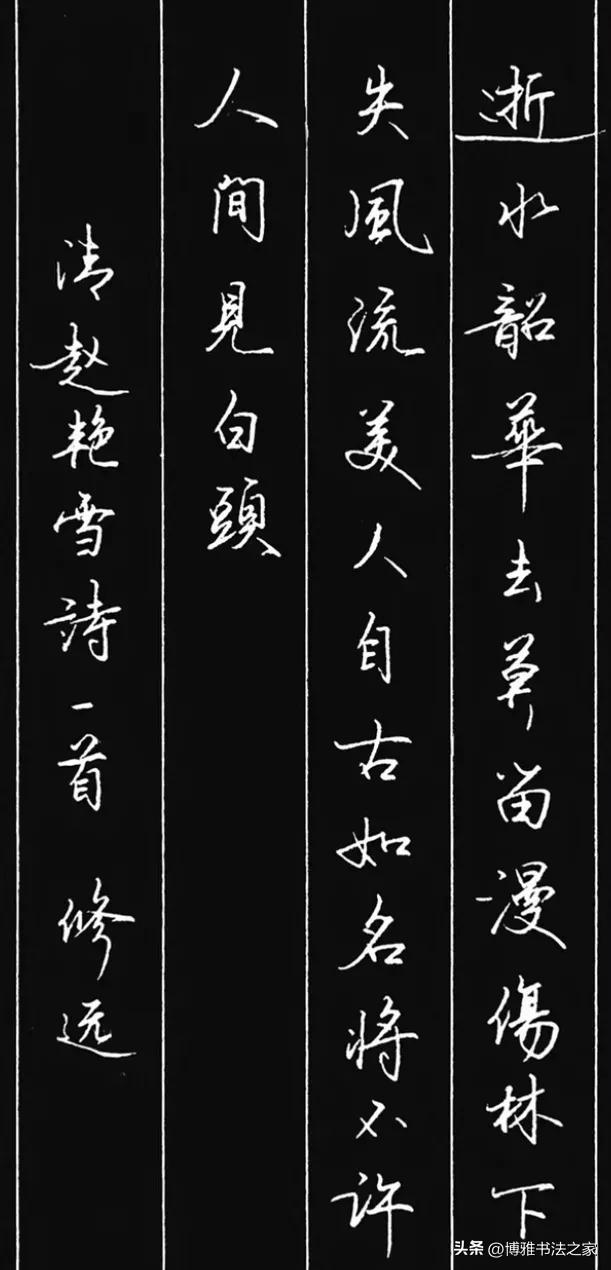 逝水韶華去莫留漫傷林下
失風流美人自古如名将不許
人間見白頭
清赵艳雪詩一首 修远
头条 @博雅书法之家